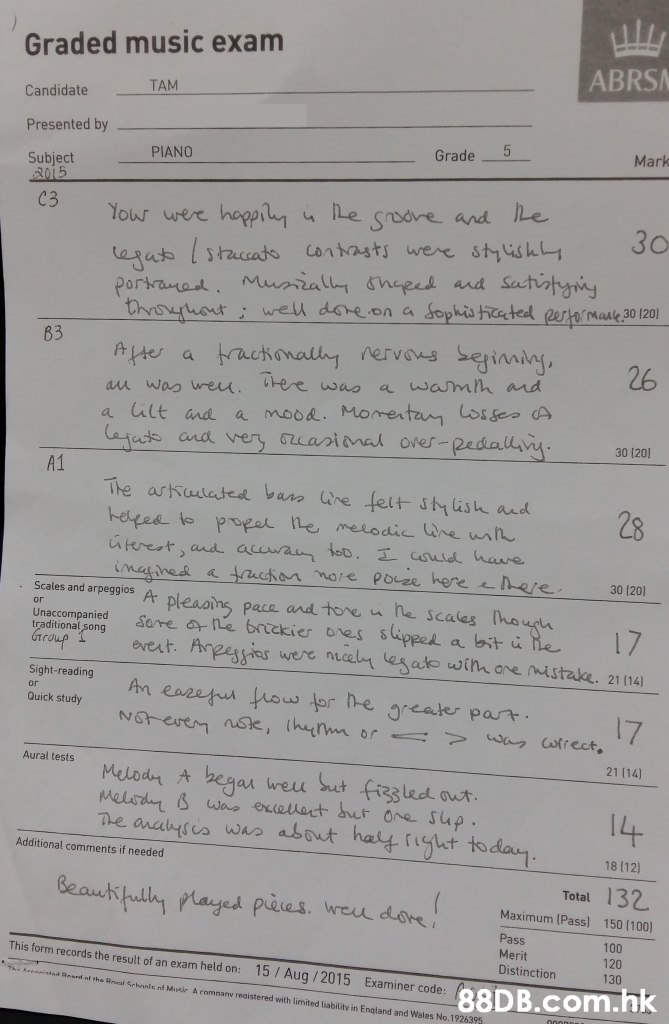 Graded music exam
ABRSM
Candidate TAM
Presented by
Subject PIANO Grade 5 Mark
2015
C3
Your were happily in the groove and the
legato / staccato contrasts were stylishly 30
portrayed. Musically shaped and satisfying
throughout ; well done on a sophisticated performance. 30 (20)
B3
After a fractionally nervous beginning,
all was well. There was a warmth and 26
a lilt and a mood. Momentary losses of
legato and very occasional over-pedalling. 30 (20)
A1
The articulated bass line felt stylish and
helped to propel the melodic line with 28
interest, and accuracy too. I could have
imagined a fraction more poise here & there. 30 (20)
Scales and arpeggios
or
Unaccompanied
traditional song
Group 1
A pleasing pace and tone in the scales though
some of the trickier ones slipped a bit in the 17
event. Arpeggios were nicely legato with one mistake. 21 (14)
Sight-reading
or
Quick study
An easeful flow for the greater part.
Not every note, rhythm or < > was correct. 17
21 (14)
Aural tests
Melody A began well but fizzled out.
Melody B was excellent but one slip. 14
The analysis was about half right today.
18 (12)
Additional comments if needed
Beautifully played pieces. Well done!
Total 132
Maximum (Pass) 150 (100)
Pass 100
Merit 120
Distinction 130
This form records the result of an exam held on: 15 / Aug / 2015 Examiner code:
The Associated Board of the Royal Schools of Music A company registered with limited liability in England and Wales No. 1926395
88DB.com.hk